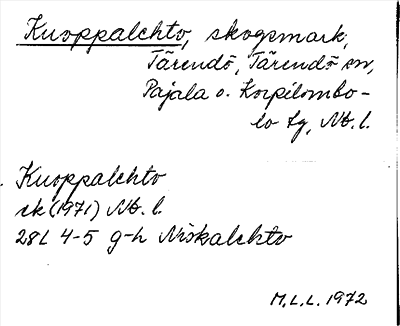 Kuoppalehto, skogsmark,
Tärendö, Tärendö sn,
Pajala o. Korpilombo-
lo tg, Nb. l.
Kuoppalehto
ek (1971) Nb. l.
28L 4-5 g-h Niskalehto
M.L.L. 1972